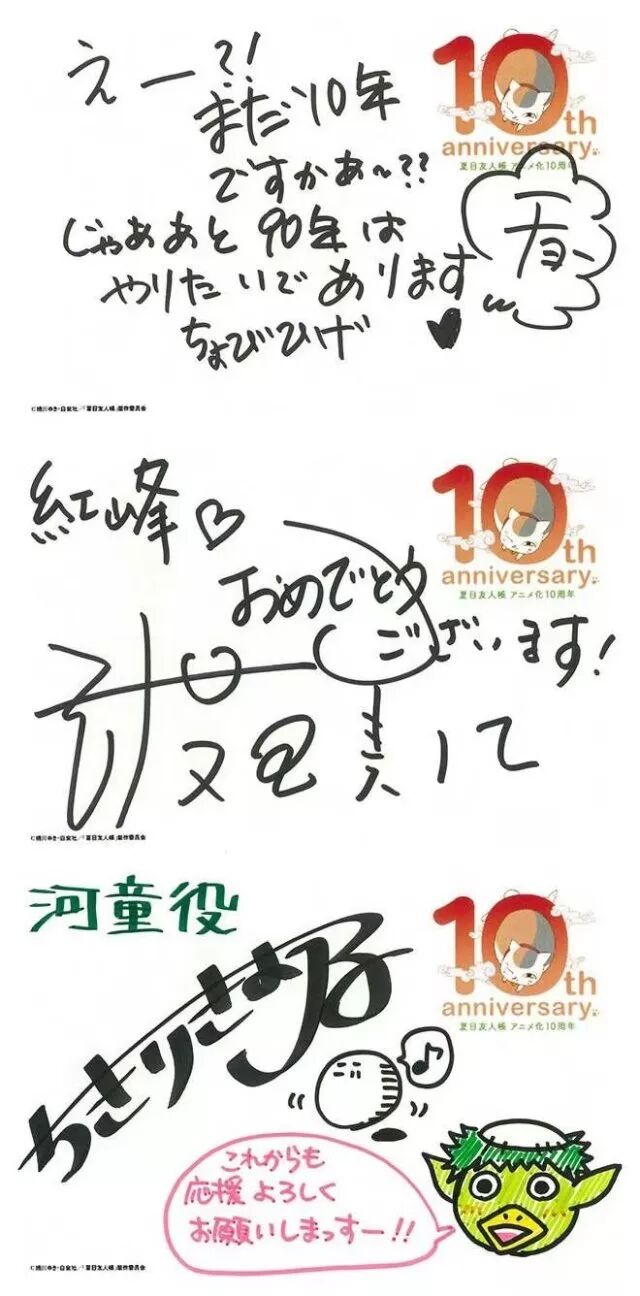 えー?!
まだ10年
ですかあ〜??
じゃああと90年は
やりたいであります
ちょびひげ
10th
anniversary
夏目友人帳 アニメ化10周年
©緑川ゆき・白泉社/「夏目友人帳」製作委員会
紅峰♡
おめでとう
ございます!
10th
anniversary
夏目友人帳 アニメ化10周年
©緑川ゆき・白泉社/「夏目友人帳」製作委員会
河童役
ちさりさよ子
10th
anniversary
夏目友人帳 アニメ化10周年
これからも
応援よろしく
お願いしまっすー!!
©緑川ゆき・白泉社/「夏目友人帳」製作委員会